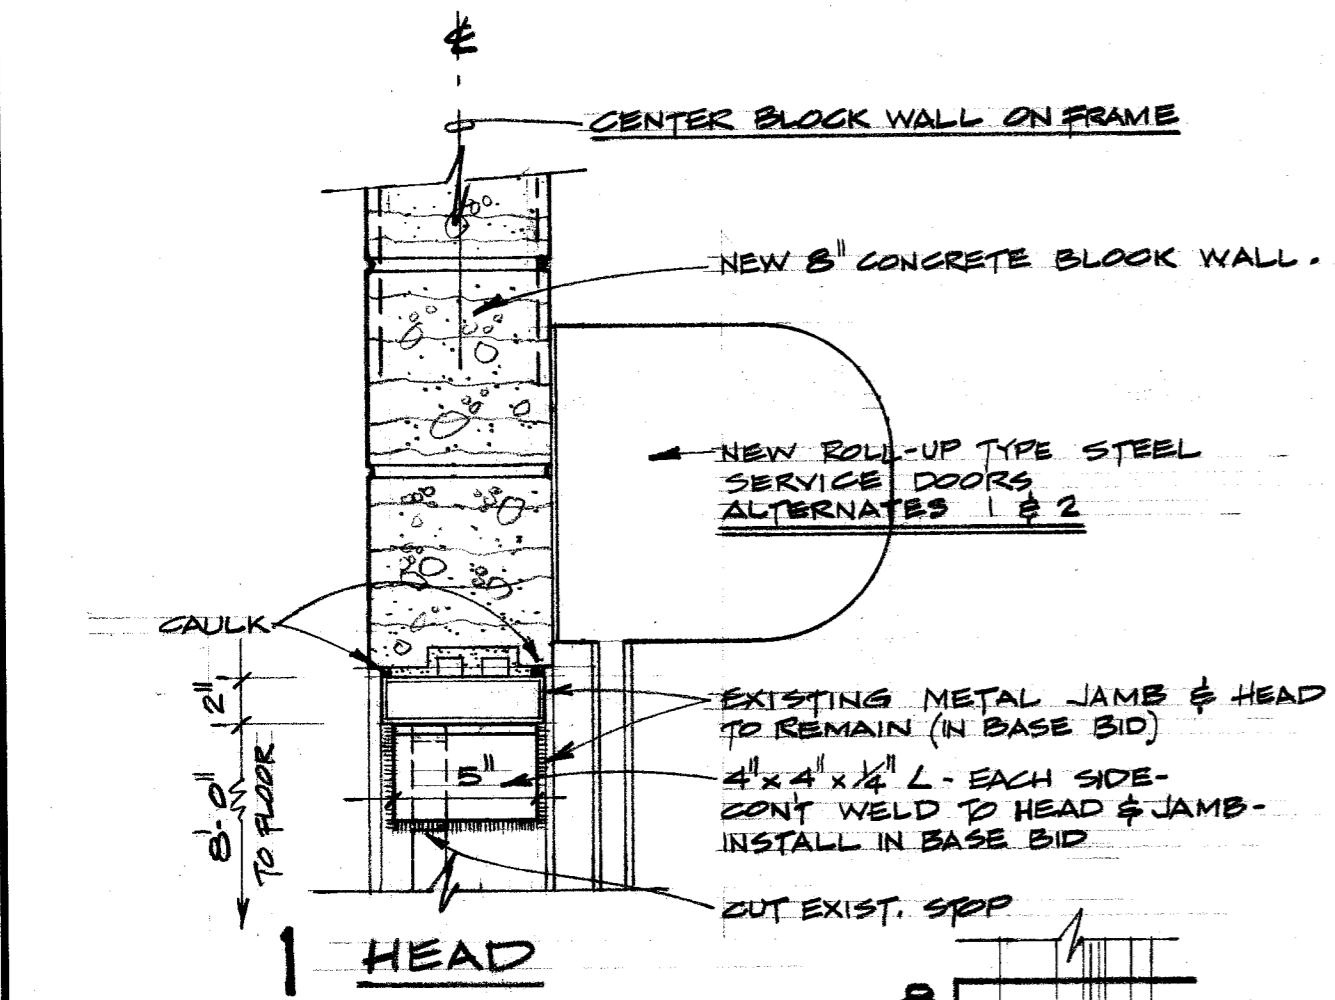 ℄
CENTER BLOCK WALL ON FRAME
NEW 8" CONCRETE BLOCK WALL.
NEW ROLL-UP TYPE STEEL
SERVICE DOORS
ALTERNATES 1 & 2
CAULK
2"
8'-0"
TO FLOOR
EXISTING METAL JAMB & HEAD
TO REMAIN (IN BASE BID)
5"
4" x 4" x 1/4" L - EACH SIDE-
CON'T WELD TO HEAD & JAMB-
INSTALL IN BASE BID
CUT EXIST. STOP
1 HEAD